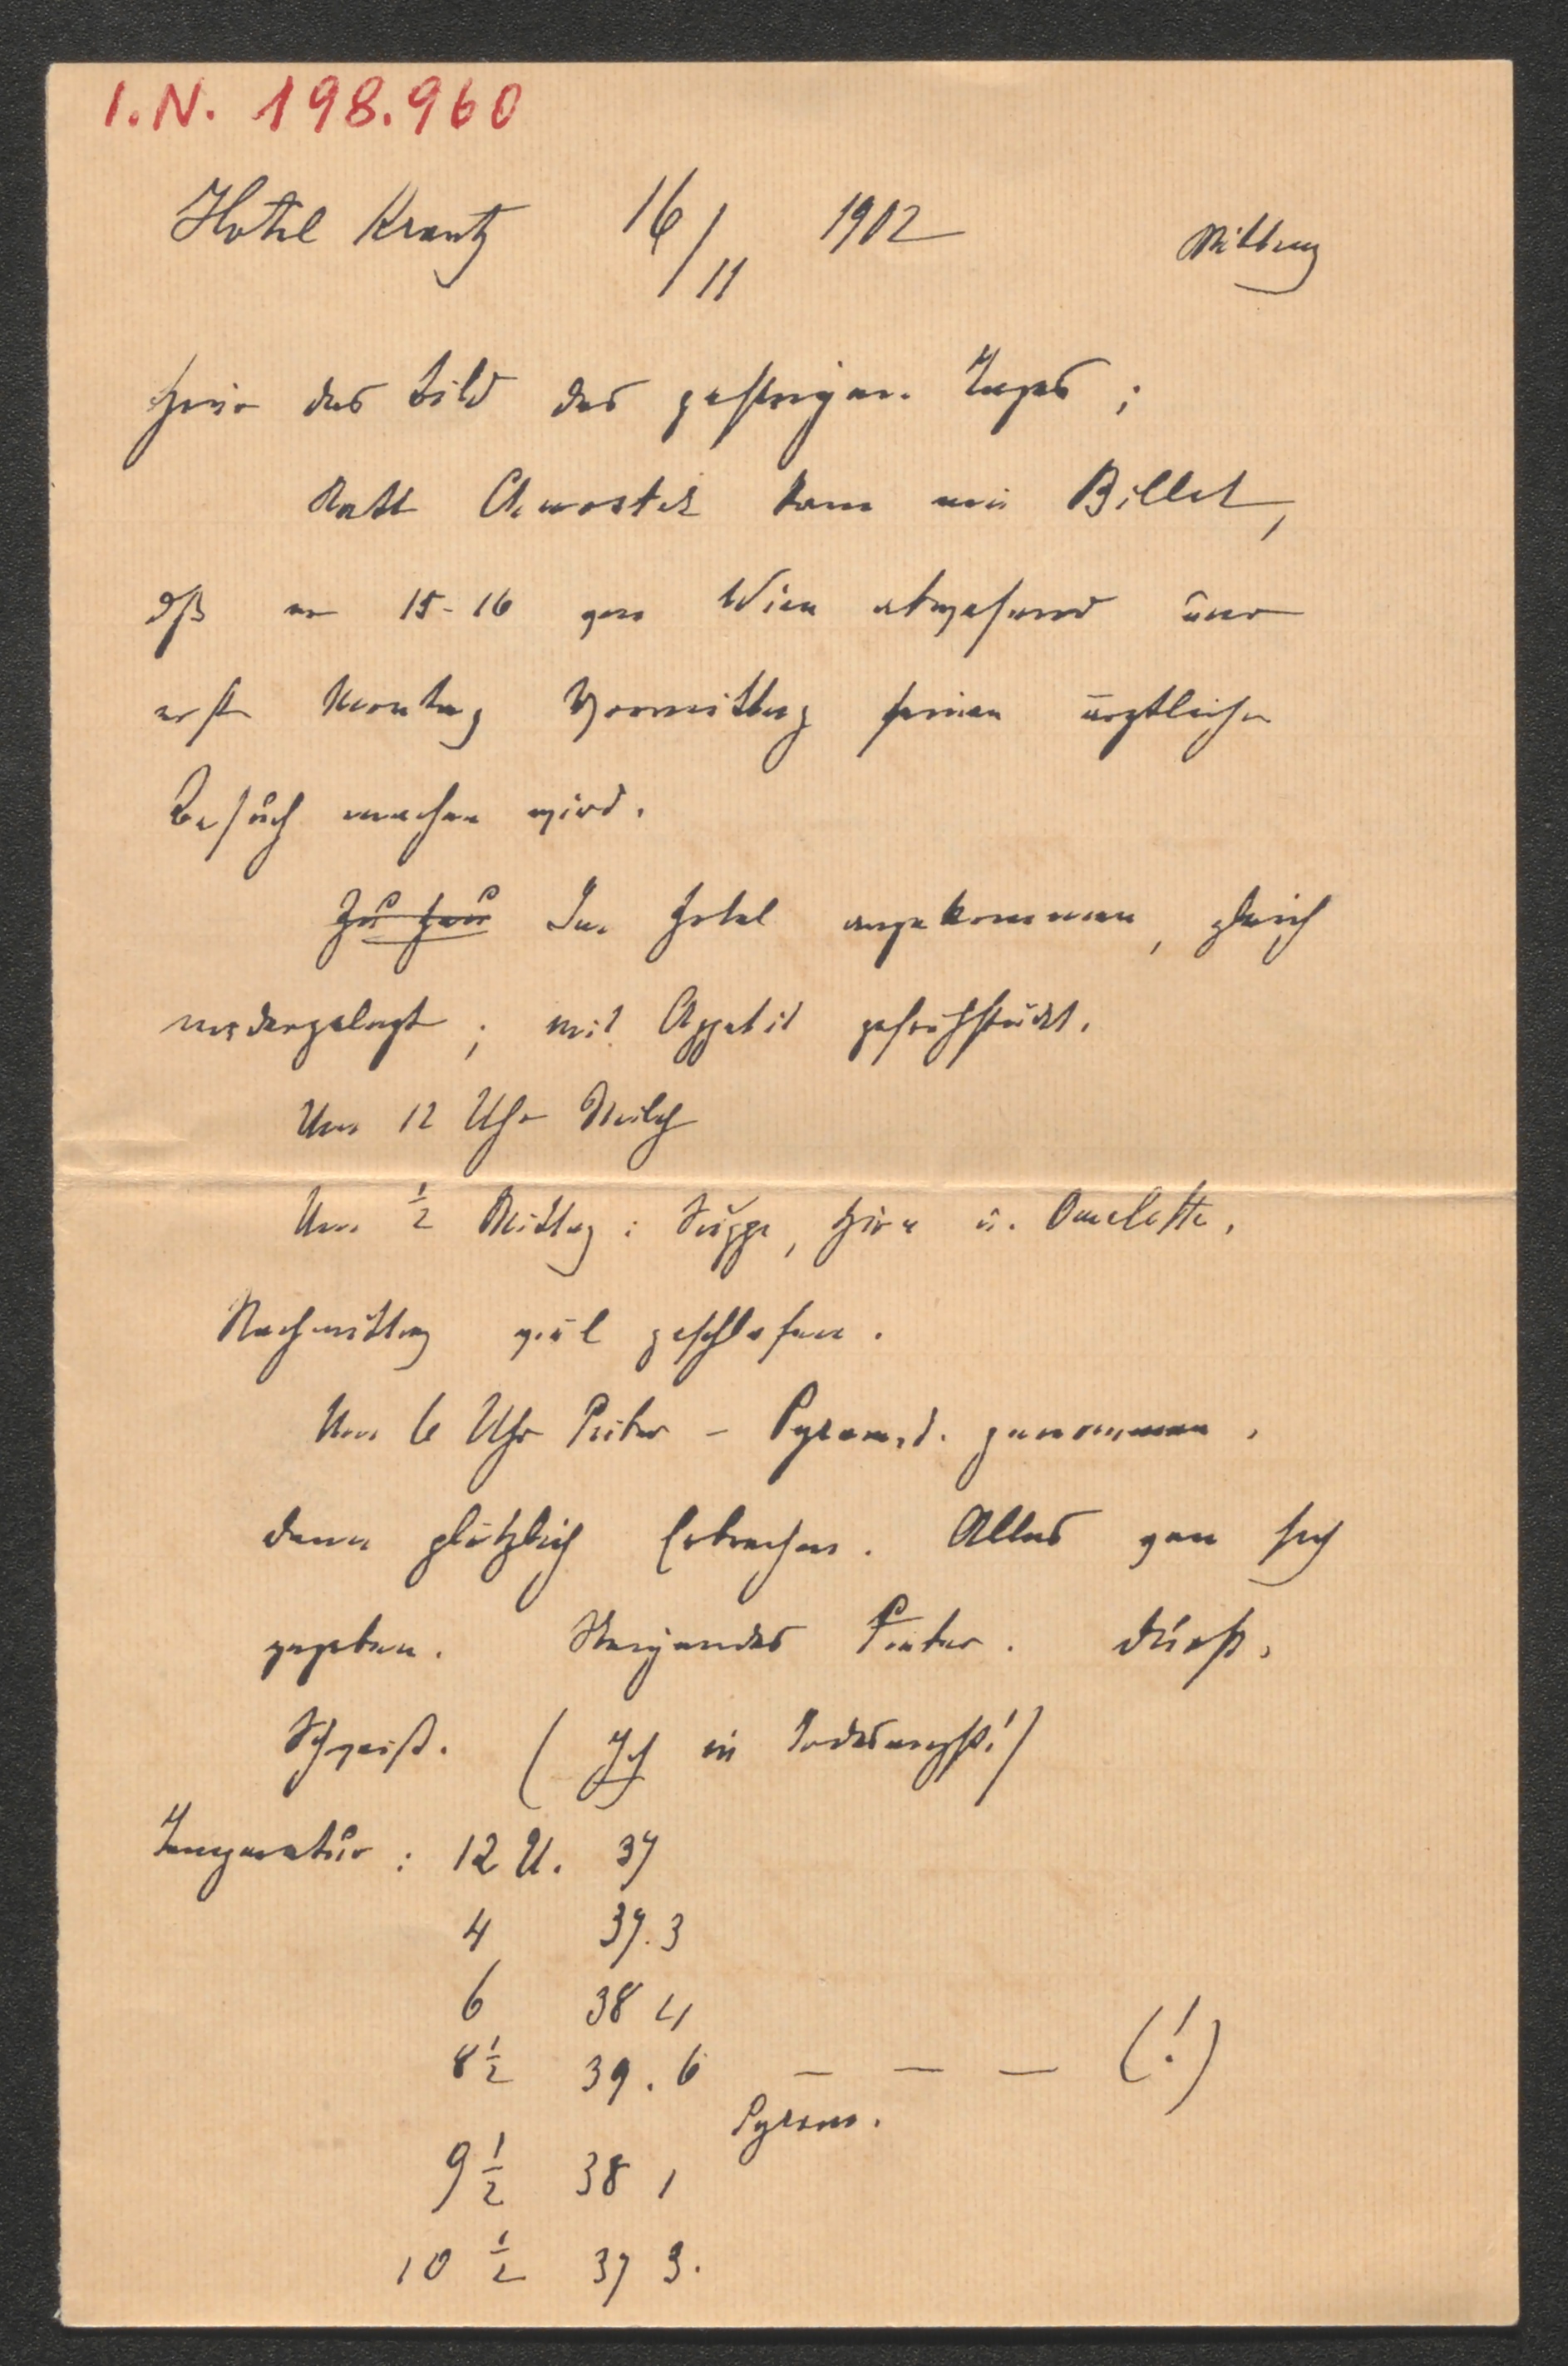 I.N. 198.960
Hotel Krantz 16/11 1902 Mittag
Hier das Bild des gestrigen Tages;
Statt Chvostek kam ein Billet,
dß er 15-16 von Wien abwesend und
erst Montag Vormittag seinen ärztlichen
Besuch machen wird.
Zu Hau Im Hotel angekommen, gleich
niedergelegt; mit Appetit gefrühstückt.
Um 12 Uhr Milch
Um ½ Mittag: Suppe, Hirn u. Omelette.
Nachmittag viel geschlafen.
Um 6 Uhr Fieber – Pyramid. genommen,
dann plötzlich Erbrechen. Alles von sich
gegeben. Steigendes Fieber. Durst,
Schweiß. (Ich in Todesangst!)
Temperatur: 12 U. 37
4 37.3
6 38 4
8½ 39.6 – – – (!)
Pyram.
9½ 38 1
10½ 37 3.